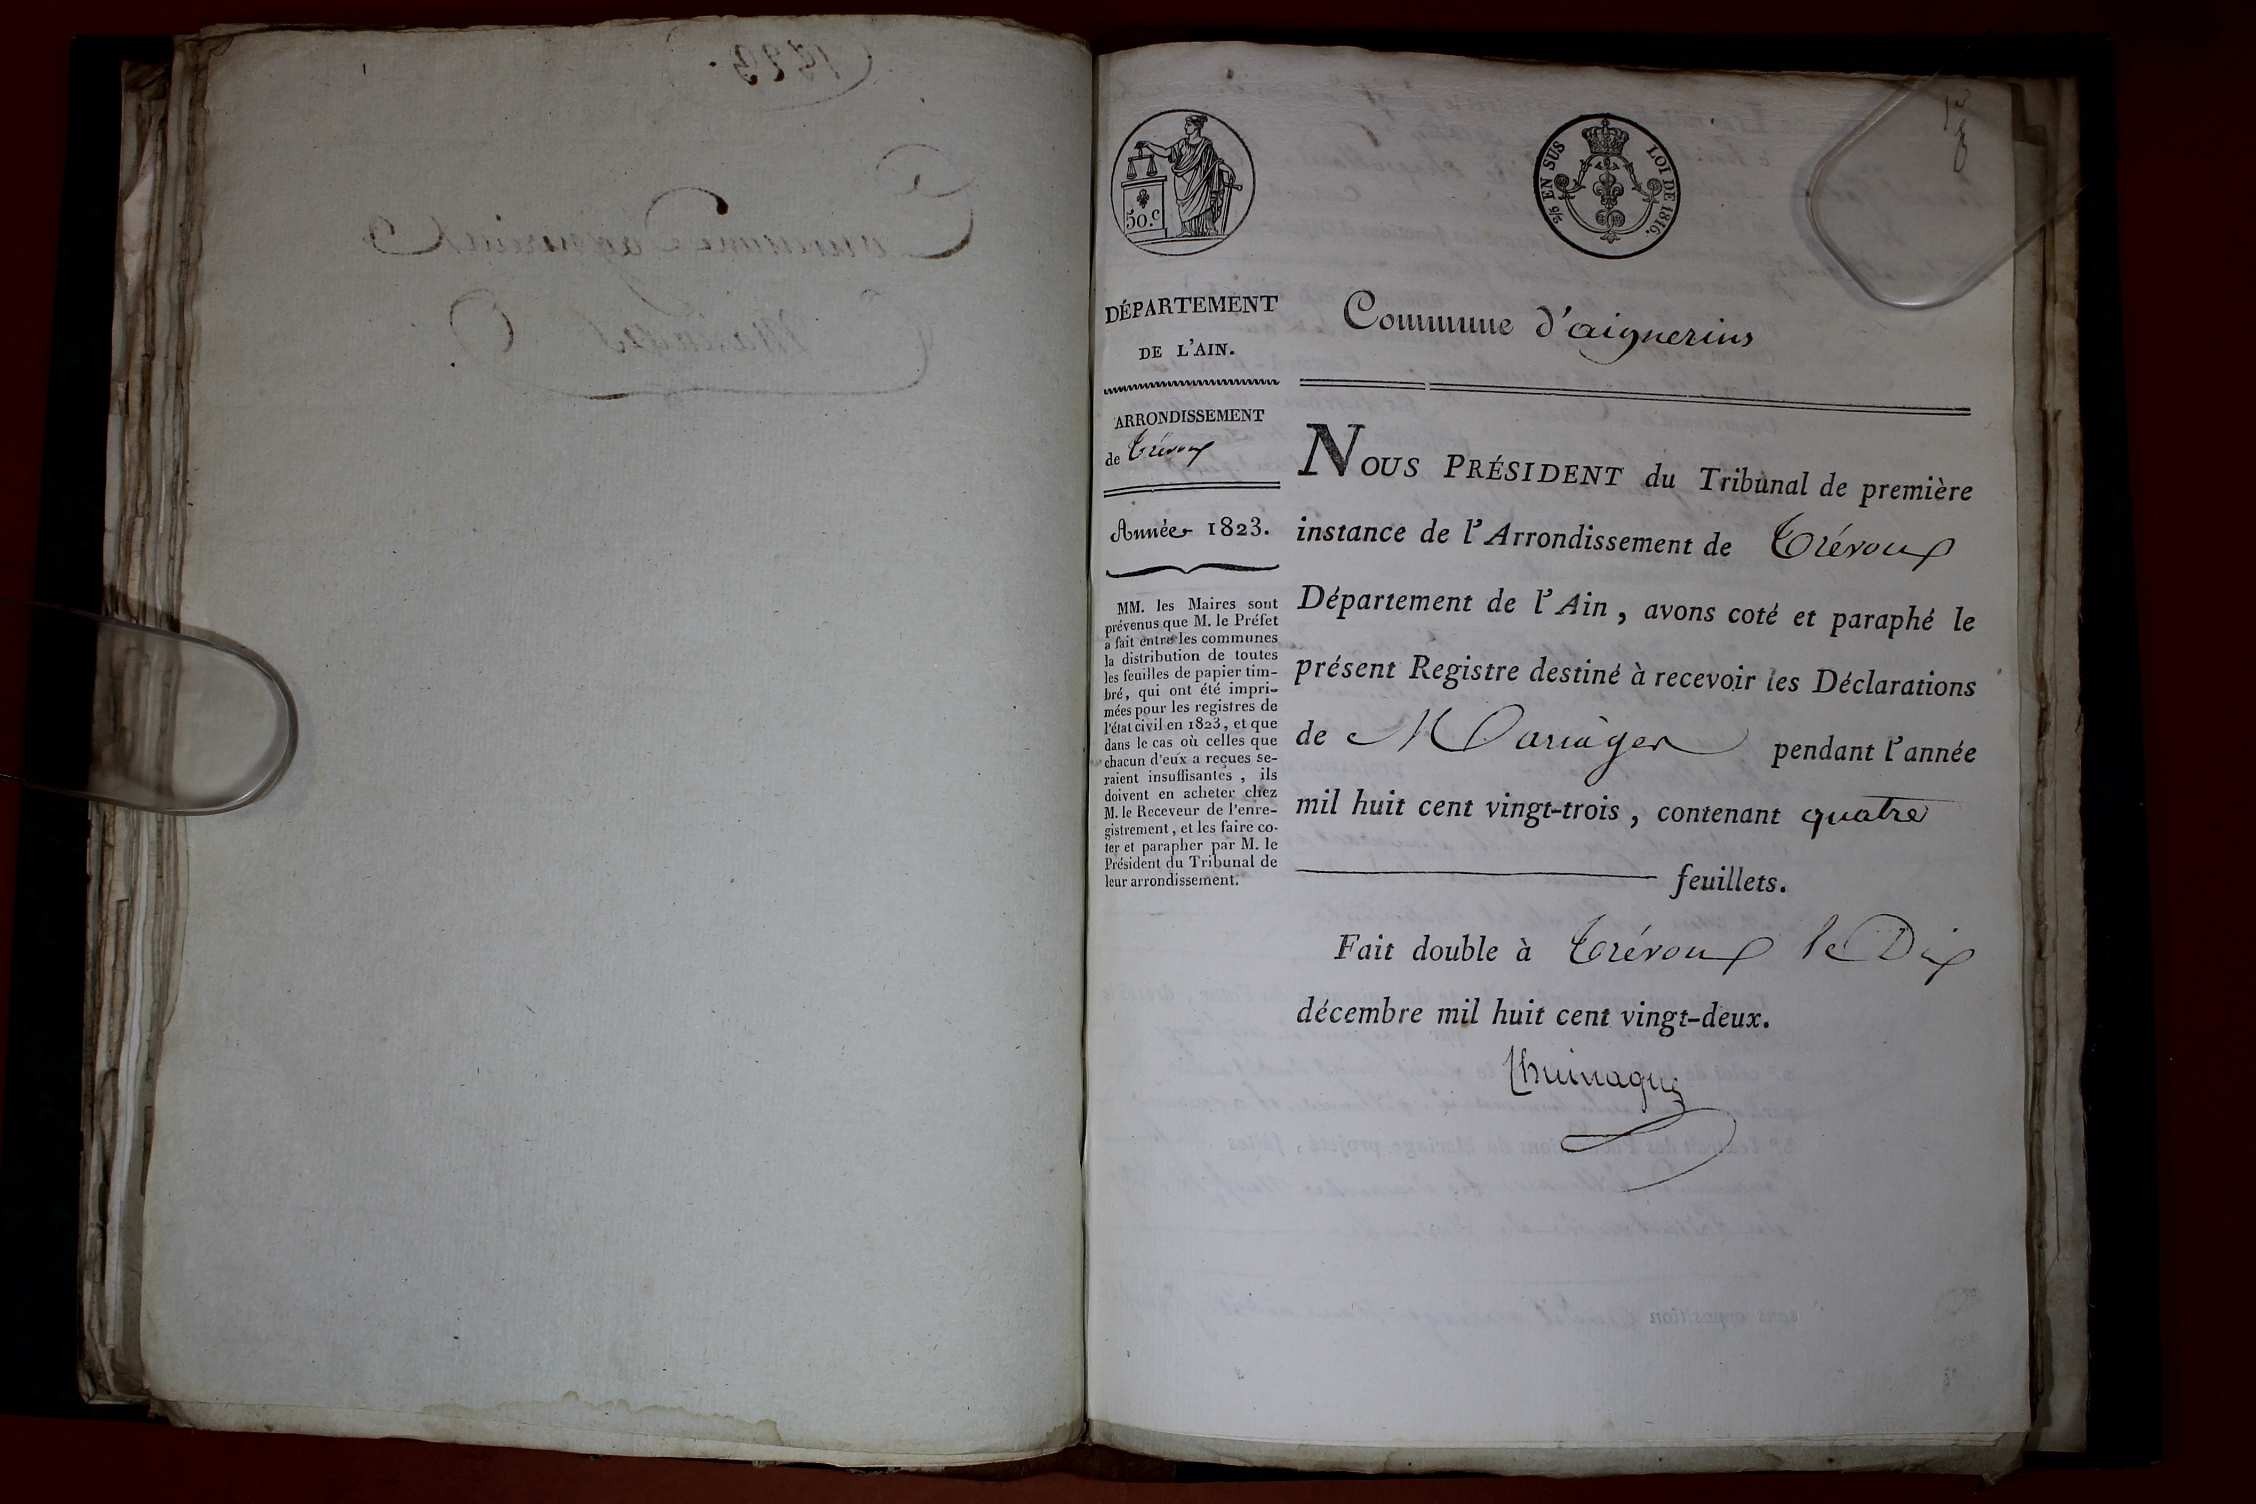 50.c
2/0 EN SUS
LOI DE 1816.
DÉPARTEMENT
DE L'AIN.
ARRONDISSEMENT
de Trévoux
Année 1823.
MM. les Maires sont
prévenus que M. le Préfet
a fait entre les communes
la distribution de toutes
les feuilles de papier tim-
bré, qui ont été impri-
mées pour les registres de
l'état civil en 1823, et que
dans le cas où celles que
chacun d'eux a reçues se-
raient insuffisantes, ils
doivent en acheter chez
M. le Receveur de l'enre-
gistrement, et les faire co-
ter et parapher par M. le
Président du Tribunal de
leur arrondissement.
Commune d'aignerins
NOUS PRÉSIDENT du Tribunal de première
instance de l'Arrondissement de Trévoux
Département de l'Ain, avons coté et paraphé le
présent Registre destiné à recevoir les Déclarations
de Mariages pendant l'année
mil huit cent vingt-trois, contenant quatre
feuillets.
Fait double à Trévoux le Dix
décembre mil huit cent vingt-deux.